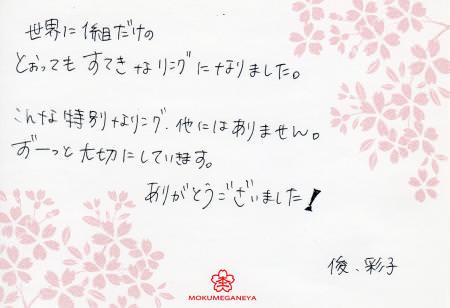 世界に1組だけの
とおっても すてきなリングになりました。
こんな特別なリング、他にはありません。
ずーっと大切にしていきます。
ありがとうございました!
俊、彩子
MOKUMEGANEYA